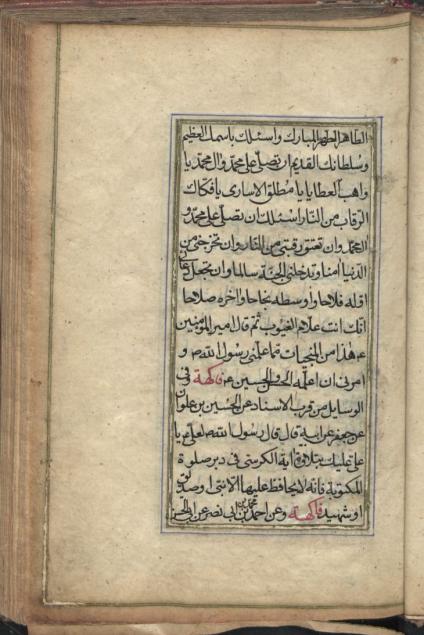 الطاهر الطهر المبارك واسئلك باسمك العظيم
وسلطانك القديم ان تصلى على محمد وال محمد يا
واهب العطايا يا مطلق الاسارى يا فكاك
الرقاب من النار اسئلك ان تصلى على محمد و
ال محمد وان تعتق رقبتى من النار وان تخرجنى من
الدنيا امنا وتدخلنى الجنة سالما وان تجعل دعائى
اوله فلاحا واوسطه نجاحا واخره صلاحا
انك انت علام الغيوب ثم قال امير المؤمنين
ع هذا من المنجيات مما علمنى رسول الله ص و
امرنى ان اعلمه الحسن والحسين ع فاكهة فى
الوسايل من قرب الاسناد عن الحسين بن علوان
عن جعفر عن ابيه قال قال رسول الله ص لعلى ع يا
على عليك بتلاوة اية الكرسى فى دبر صلوة
المكتوبة فانه لا يحافظ عليها الا نبى او صديق
او شهيد فاكهة وعن احمد بن محمد بن ابى نصر عن ابى الحسن